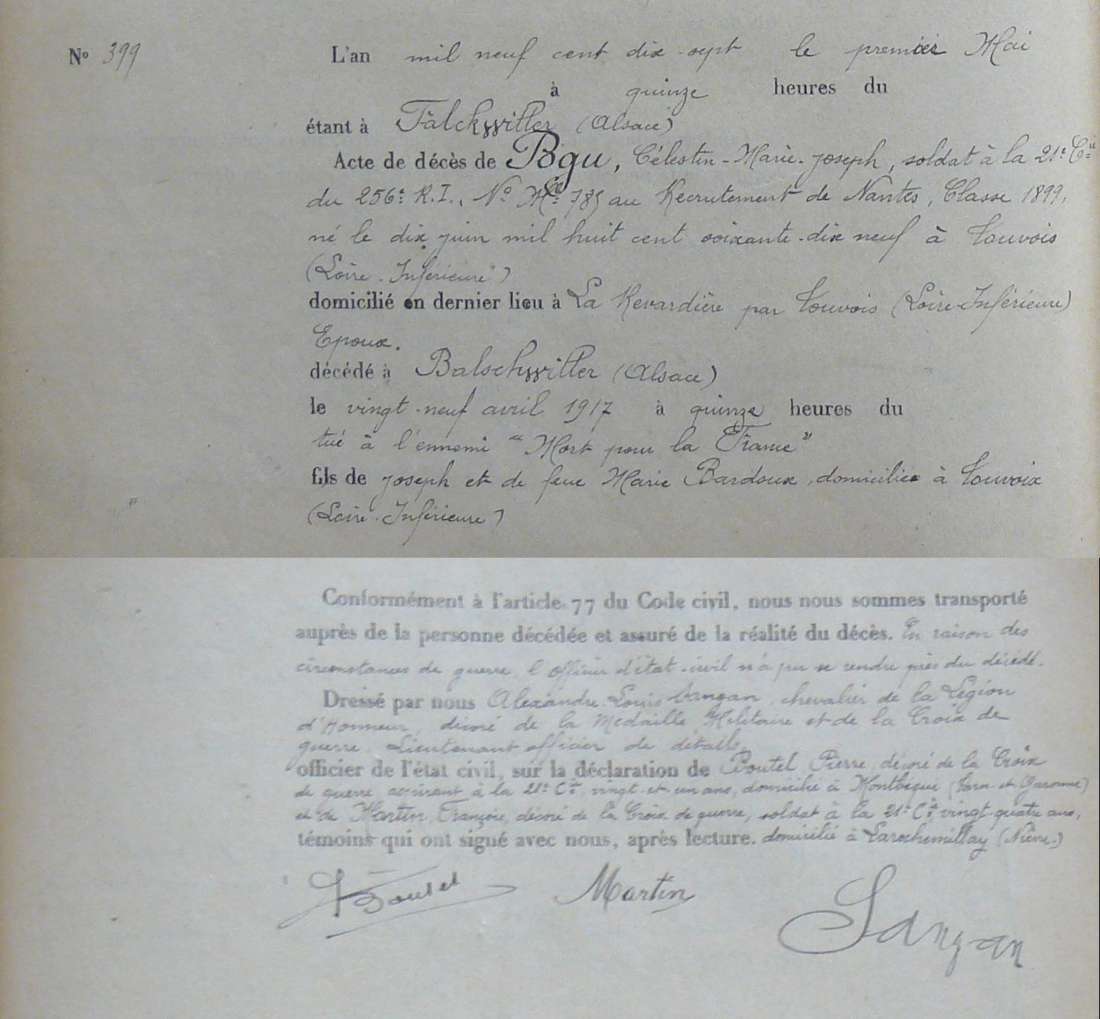 N° 399
L'an mil neuf cent dix-sept le premier Mai
à quinze heures du
étant à Falckwiller (Alsace)
Acte de décès de Bgu, Célestin-Marie-Joseph, soldat à la 21e Cie
du 256e R.I., No Mle 785 au Recrutement de Nantes, Classe 1899,
né le dix juin mil huit cent soixante-dix neuf à Touvois
(Loire-Inférieure)
domicilié en dernier lieu à La Revardière par Touvois (Loire-Inférieure)
Epoux.
décédé à Balschwiller (Alsace)
le vingt-neuf avril 1917 à quinze heures du
tué à l'ennemi "Mort pour la France"
fils de Joseph et de feue Marie Bardoux, domiciliés à Touvois
(Loire-Inférieure)
Conformément à l'article 77 du Code civil, nous nous sommes transporté
auprès de la personne décédée et assuré de la réalité du décès. En raison des
circonstances de guerre l'officier d'état-civil n'a pu se rendre près du décédé.
Dressé par nous Alexandre Louis Sangan, chevalier de la Légion
d'Honneur, décoré de la Médaille Militaire et de la Croix de
guerre Lieutenant officier de détails,
officier de l'état civil, sur la déclaration de Boutel Pierre, décoré de la Croix
de guerre à la 21e Cie, vingt et un ans, domicilié à Montbéqui (Tarn et Garonne)
et de Martin, François, décoré de la Croix de guerre, soldat à la 21e Cie, vingt-quatre ans,
témoins qui ont signé avec nous, après lecture. domicilié à Larochemillay (Nièvre)
Boutel Martin Sangan